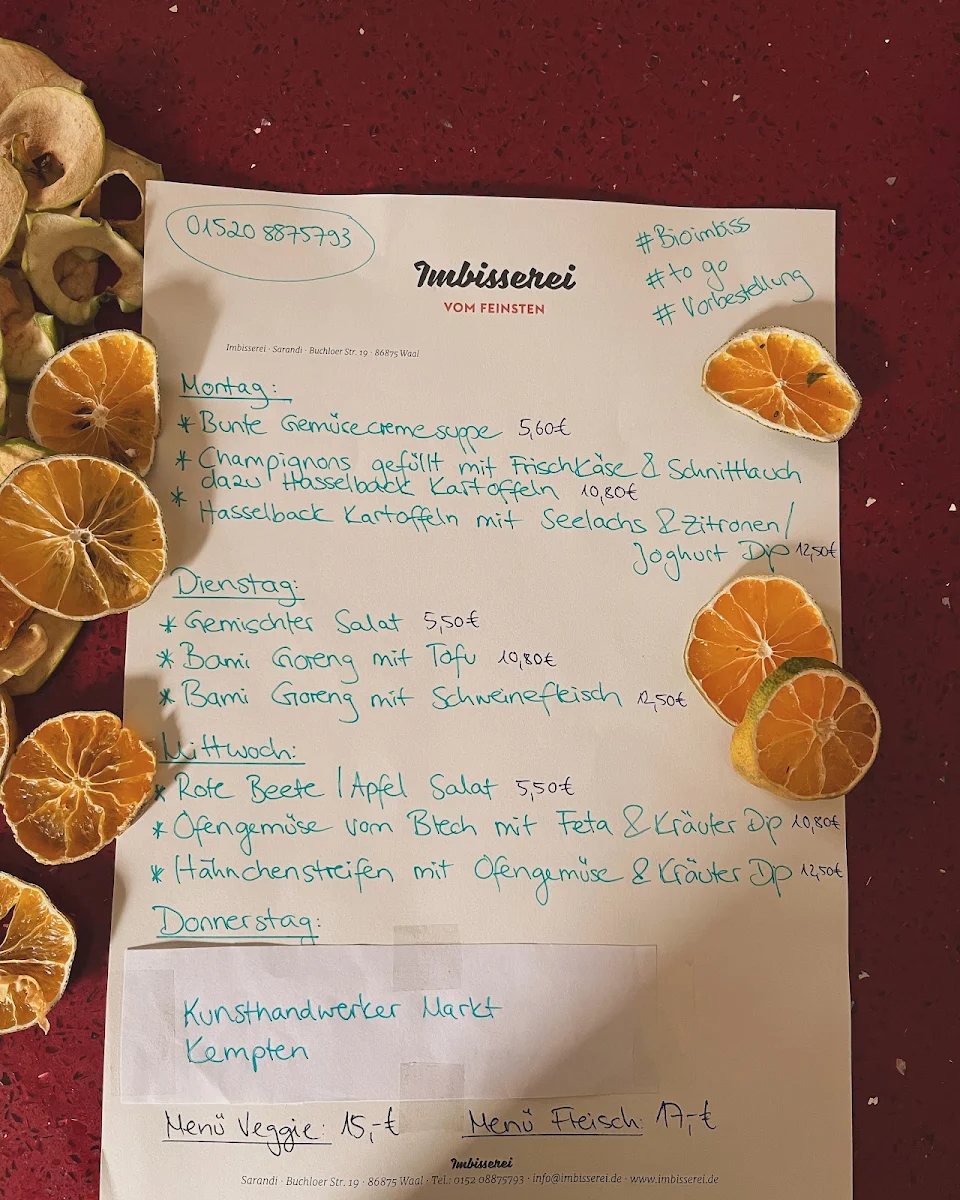 01520 8875793
#Bioimbiss
#to go
#Vorbestellung
Imbisserei
VOM FEINSTEN
Imbisserei · Sarandi · Buchloer Str. 19 · 86875 Waal
Montag:
* Bunte Gemüsecremesuppe 5,60€
* Champignons gefüllt mit Frischkäse & Schnittlauch
dazu Hasselback Kartoffeln 10,80€
* Hasselback Kartoffeln mit Seelachs & Zitronen/
Joghurt Dip 12,50€
Dienstag:
* Gemischter Salat 5,50€
* Bami Goreng mit Tofu 10,80€
* Bami Goreng mit Schweinefleisch 12,50€
Mittwoch:
* Rote Beete / Apfel Salat 5,50€
* Ofengemüse vom Blech mit Feta & Kräuter Dip 10,80€
* Hähnchenstreifen mit Ofengemüse & Kräuter Dip 12,50€
Donnerstag:
Kunsthandwerker Markt
Kempten
Menü Veggie: 15,-€ Menü Fleisch: 17,-€
Imbisserei
Sarandi · Buchloer Str. 19 · 86875 Waal · Tel.: 0152 08875793 · info@imbisserei.de · www.imbisserei.de